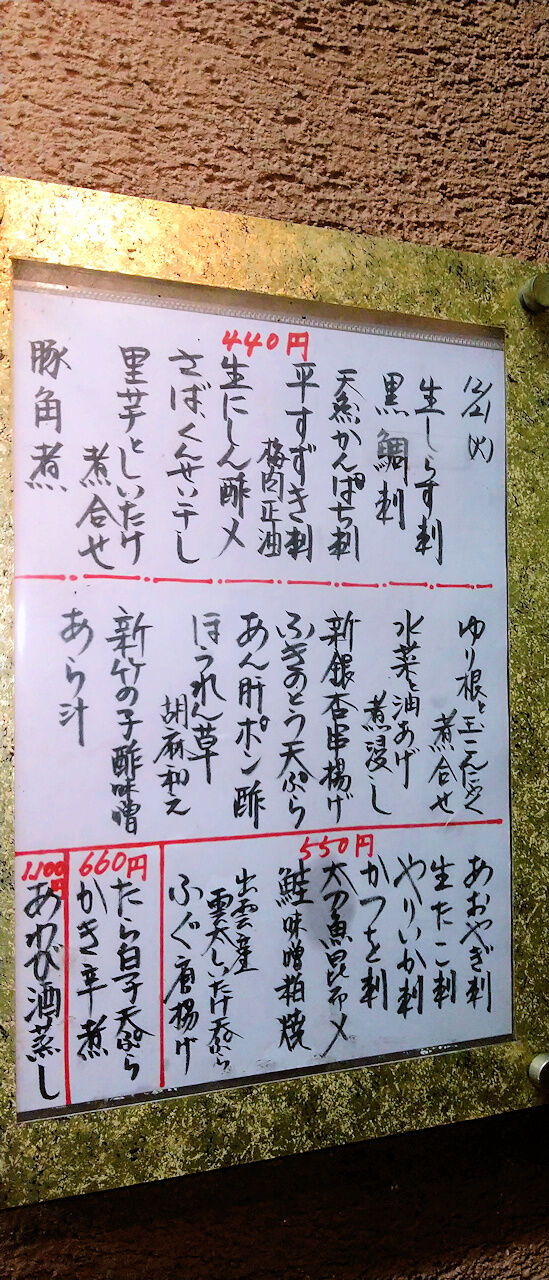 12/21(火)
440円
生しらす刺
黒鯛刺
天然かんぱち刺
平すずき刺
梅肉正油
生にしん酢〆
さば、くんせい干し
里芋としいたけ
煮合せ
豚角煮
ゆり根と玉こんにゃく
煮合せ
水菜と油あげ
煮浸し
新銀杏串揚げ
ふきのとう天ぷら
あん肝ポン酢
ほうれん草
胡麻和え
新竹の子酢味噌
あら汁
550円
あおやぎ刺
生たこ刺
やりいか刺
かつを刺
太刀魚昆布〆
鮭味噌粕焼
出雲産
雲太しいたけ天ぷら
ふぐ唐揚げ
660円
たら白子天ぷら
かき辛煮
1,100円
あわび酒蒸し